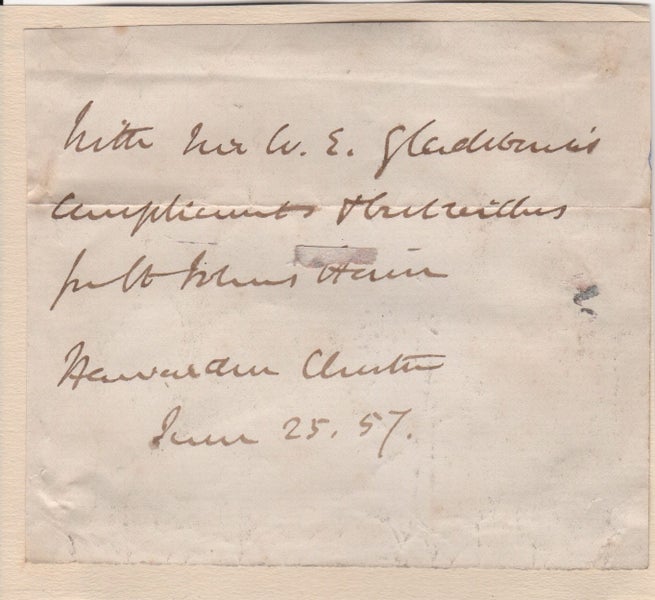 With Mr W. E. Gladstone's
compliments & best wishes
for St Johns
Hawarden Chester
June 25. 57.